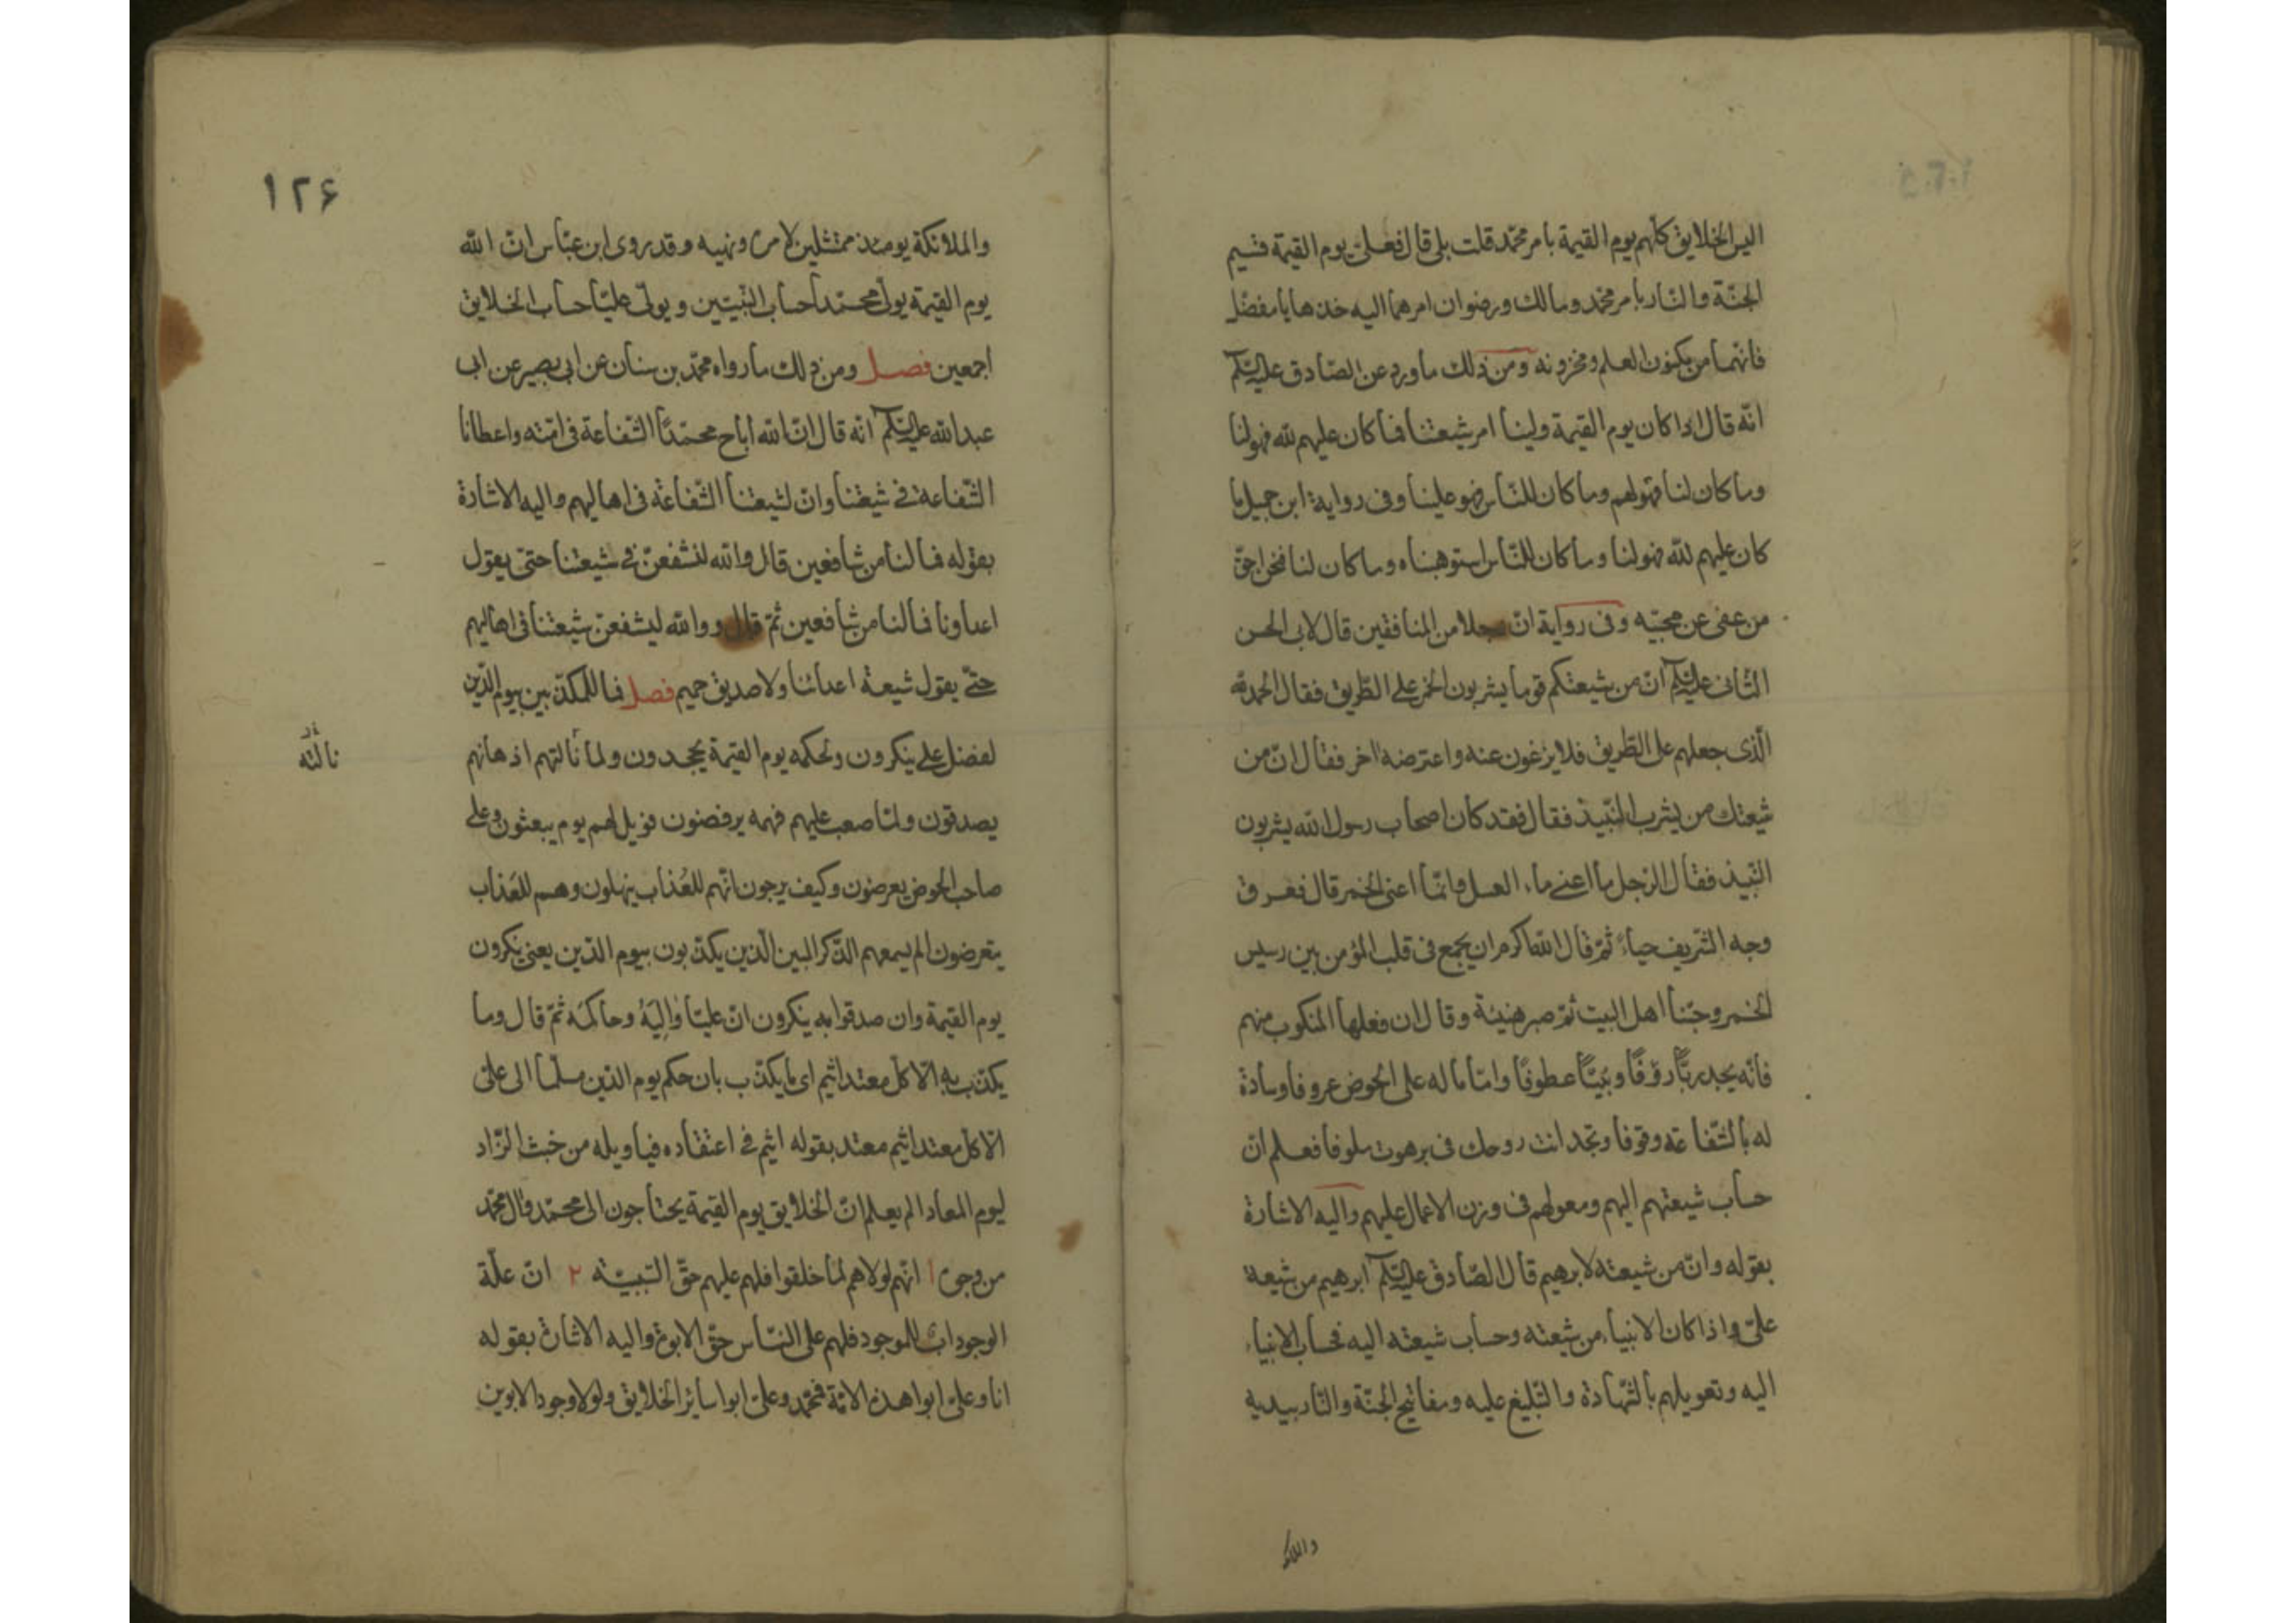 اليس الخلايق كلهم يوم القيمة بامر محمد قلت بلى قال فعلى يوم القيمة قسيم
الجنّة والنار بامر محمد ومالك ورضوان امرهما اليه خذها يا مفضل
فانهما من مكنون العلم ومخزونه ومن ذلك ما ورد عن الصادق عليه السلم
انّه قال اذا كان يوم القيمة ولينا امر شيعتنا فما كان عليهم لله فهو لنا
وما كان لنا فهو لهم وما كان للناس فهو علينا وفى رواية ابن جميل ما
كان عليهم لله فهو لنا وما كان للناس استوهبناه وما كان لنا فنحن احق
من عفى عن محبيه وفى رواية ان رجلا من المنافقين قال لابى الحسن
الثانى عليه السلم ان من شيعتكم قوما يشربون الخمر على الطريق فقال الحمد لله
الذى جعلهم على الطريق فلا يزغون عنه واعترضه اخر فقال ان من
شيعتك من يشرب النبيذ فقال فقد كان اصحاب رسول الله يشربون
النبيذ فقال الرجل ما اعنى ماء العسل وانما اعنى الخمر قال فعرق
وجه الشريف حياءً ثم قال الله اكرم ان يجمع فى قلب المؤمن بين رسيس
الخمر وحبنا اهل البيت ثم صبر هنيئة وقال ان فعلها المنكوب منهم
فانه يجد ربًّا رؤفًا ونبيًّا عطوفًا واماما له على الحوض عروفا وسادة
له بالشفاعة وقوفا وتجد انت روحك فى برهوت ملوفا فعلم ان
حساب شيعتهم اليهم ومعولهم فى وزن الاعمال عليهم واليه الاشارة
بقوله وان من شيعته لابرهيم قال الصادق عليه السلم ابرهيم من شيعة
على واذا كان الانبياء من شيعته وحساب شيعته اليه فحساب الانبياء
اليه وتعويلهم بالشهادة والتبليغ عليه ومفاتيح الجنة والنار بيديه
والملائكة
١٢۶
والملائكة يومئذ ممتثلين لامره ونهيه وقد روى ابن عباس ان الله
يوم القيمة يولى محمداً حساب النبيين ويولى عليّا حساب الخلايق
اجمعين فصل ومن ذلك ما رواه محمد بن سنان عن ابى بصير عن ابى
عبد الله عليه السلم انه قال ان الله اباح محمدًا الشفاعة فى امته واعطانا
الشفاعة فى شيعتنا وان لشيعتنا الشفاعة فى اهاليهم واليه الاشارة
بقوله فما لنا من شافعين قال والله لنشفعن فى شيعتنا حتى يقول
اعداونا فما لنا من شافعين ثم قال ووالله ليشفعن شيعتنا فى اهاليهم
حتى يقول شيعة اعدائنا ولا صديق حميم فصل فما للمكذبين بيوم الدين
لفضل على ينكرون ولحكمه يوم القيمة يجحدون ولما نالتهم اذهانهم
نالته
يصدقون ولما صعب عليهم فهمه يرفضون فويل لهم يوم يبعثون وعلى
صاحب الحوض يعرضون وكيف يرجون انهم للعُذاب ينهلون وهم للعَذاب
يتعرضون الم يسمعهم الذكر المبين الذين يكذبون بيوم الدين يعنى ينكرون
يوم القيمة وان صدقوا به ينكرون ان عليّا وٰالِيَهُ وحاكمَه ثم قال وما
يكذب به الا كل معتد اثيم اى ما يكذب بان حكم يوم الدين مسلّما الى على
الا كل معتد اثيم معتد بقوله اثيم فى اعتقاده فيا ويله من خبث الزاد
ليوم المعاد الم يعلم ان الخلايق يوم القيمة يحتاجون الى محمد وال محمد
من وجوه ١ انهم لولاهم لما خلقوا فلهم عليهم حق ٢ ان علة
الوجود اب للموجود فلهم على الناس حق الابوة واليه الاشارة بقوله
انا وعلى ابوا هذه الامة فمحمد وعلى ابوا ساير الخلايق ولولا وجود الابوين